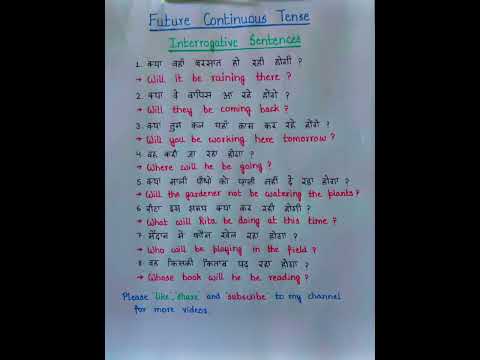 Future Continuous Tense
Interrogative Sentences
1. क्या वहाँ बरसात हो रही होगी ?
→ Will it be raining there ?
2. क्या वे वापिस आ रहे होंगे ?
→ Will they be coming back ?
3. क्या तुम कल यहाँ काम कर रहे होगे ?
→ Will you be working here tomorrow ?
4. वह कहाँ जा रहा होगा ?
→ Where will he be going ?
5. क्या माली पौधों को पानी नहीं दे रहा होगा ?
→ Will the gardener not be watering the plants ?
6. रीटा इस समय क्या कर रही होगी ?
→ What will Rita be doing at this time ?
7. मैदान में कौन खेल रहा होगा ?
→ Who will be playing in the field ?
8. वह किसकी किताब पढ़ रहा होगा ?
→ Whose book will he be reading ?
Please 'like', 'share' and 'subscribe' to my channel
for more videos.